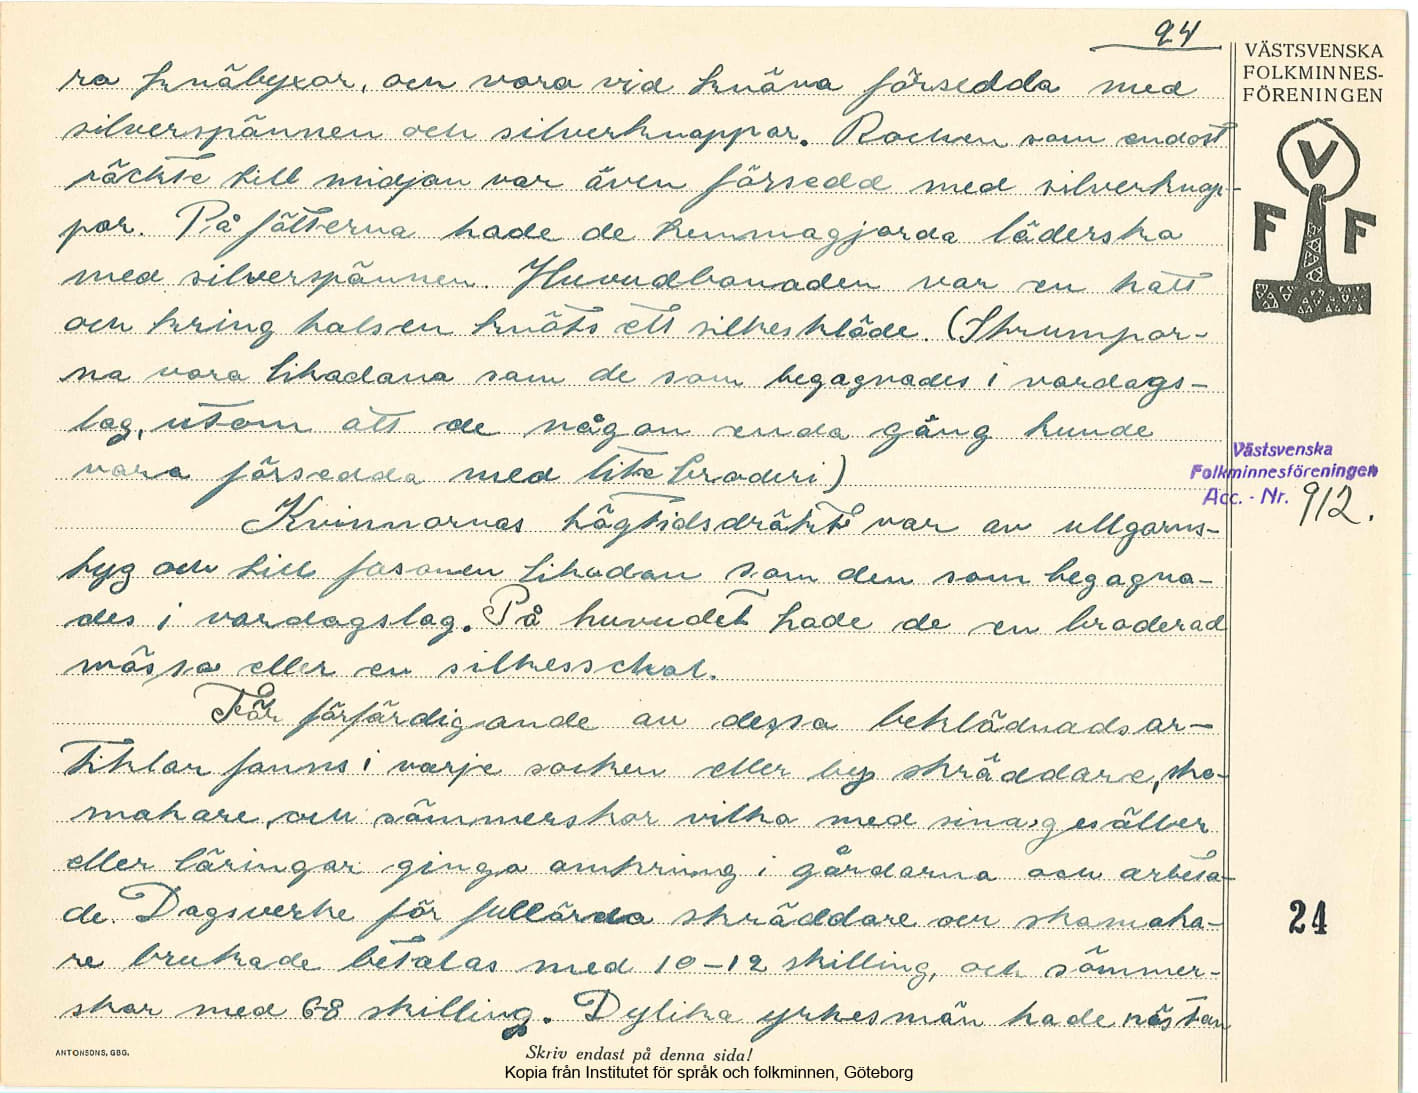 24
VÄSTSVENSKA
FOLKMINNES-
FÖRENINGEN
V
F F
ra knäbyxor, och voro vid knäna försedda med
silverspännen och silverknappar. Rocken som endast
räckte till midjan var även försedd med silverknap-
par. På fötterna hade de hemmagjorda läderskor
med silverspännen. Huvudbonaden var en hatt
och kring halsen knöts ett silkeskläde. (Strumpor-
na voro likadana som de som begagnades i vardags-
lag, utom att de någon enda gång kunde
vara försedda med lite broderi)
Kvinnornas högtidsdräkt var av ullgarns-
tyg och till fasonen likadan som den som begagna-
des i vardagslag. På huvudet hade de en broderad
mössa eller en silkesschal.
För förfärdigande av dessa beklädnadsar-
tiklar fanns i varje socken eller by skräddare, sko-
makare, och sömmerskor vilka med sina gesäller
eller läringar gingo omkring i gårdarna och arbeta-
de. Dagsverke för fullärda skräddare och skomaka-
re brukade betalas med 10-12 skilling, och sömmer-
skor med 6-8 skilling. Dylika yrkesmän hade nästan
Västsvenska
Folkminnesföreningen
Acc. - Nr. 912.
24
ANTONSONS, GBG.
Skriv endast på denna sida!
Kopia från Institutet för språk och folkminnen, Göteborg